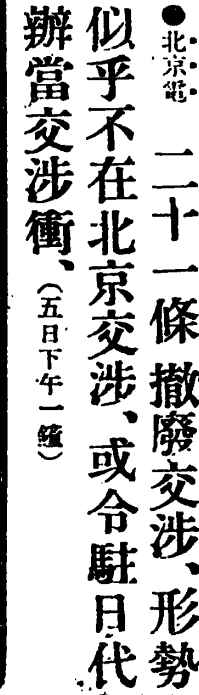 ●北京電　二十一條撤廢交涉、形勢
似乎不在北京交涉、或令駐日代
辦當交涉衝、（五日下午一鐘）